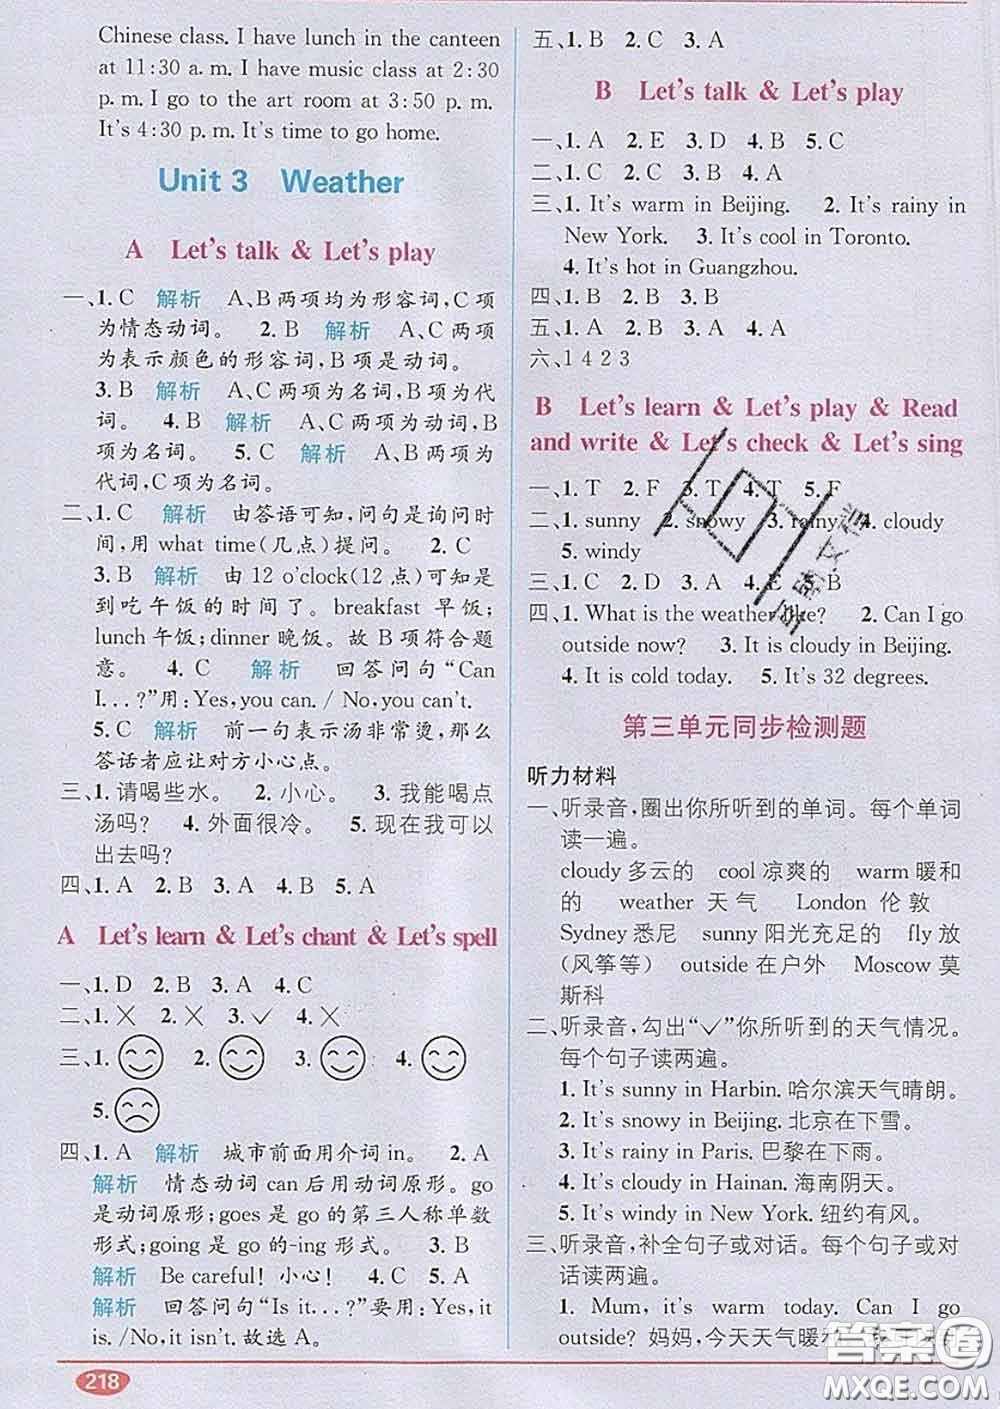 Chinese class. I have lunch in the canteen
at 11:30 a. m. I have music class at 2:30
p. m. I go to the art room at 3:50 p. m.
It's 4:30 p. m. It's time to go home.
Unit 3 Weather
A Let's talk & Let's play
一、1. C 解析 A、B两项均为形容词,C项
为情态动词。 2. B 解析 A、C两项
为表示颜色的形容词,B项是动词。
3. B 解析 A、C两项为名词,B项为代
词。 4. B 解析 A、C两项为动词,B
项为名词。 5. C 解析 A、B两项为
代词,C项为名词。
二、1. C 解析 由答语可知,问句是询问时
间,用 what time(几点)提问。 2. C
3. B 解析 由 12 o'clock(12 点)可知
到吃午饭的时间了。breakfast 早饭;
lunch 午饭;dinner 晚饭。故 B 项符合题
意。 4. C 解析 回答问句“Can
I...?”用:Yes,you can. / No,you can't.
5. C 解析 前一句表示汤非常烫,那么
答话者应让对方小心点。
三、1. 请喝些水。 2. 小心。 3. 我能喝点
汤吗? 4. 外面很冷。 5. 现在我可以
出去吗?
四、1. A 2. B 3. A 4. B 5. A
A Let's learn & Let's chant & Let's spell
一、1. D 2. B 3. A 4. C
二、1. × 2. × 3. ✓ 4. ×
三、1. 2. 3. 4.
5.
四、1. A 解析 城市前面用介词 in。 2. A
解析 情态动词 can 后用动词原形。go
是动词原形;goes 是 go 的第三人称单数
形式;going 是 go 的-ing 形式。 3. B
解析 Be careful! 小心! 4. C 5. A
解析 回答问句“Is it...?”要用:Yes,it
is. /No,it isn't. 故选 A。
218
五、1. B 2. C 3. A
B Let's talk & Let's play
一、1. A 2. E 3. D 4. B 5. C
二、1. C 2. C 3. B 4. A
三、1. It's warm in Beijing. 2. It's rainy in
New York. 3. It's cool in Toronto.
4. It's hot in Guangzhou.
四、1. B 2. B 3. B
五、1. A 2. A 3. A 4. A
六、1 4 2 3
B Let's learn & Let's play & Read
and write & Let's check & Let's sing
一、1. T 2. F 3. T 4. T 5. F
二、1. sunny 2. snowy 3. rainy 4. cloudy
5. windy
三、1. C 2. D 3. A 4. E 5. B
四、1. What is the weather like? 2. Can I go
outside now? 3. It is cloudy in Beijing.
4. It is cold today. 5. It's 32 degrees.
第三单元同步检测题
听力材料
一、听录音,圈出你所听到的单词。每个单词
读一遍。
cloudy 多云的 cool 凉爽的 warm 暖和
的 weather 天气 London 伦敦
Sydney 悉尼 sunny 阳光充足的 fly 放
(风筝等) outside 在户外 Moscow 莫
斯科
二、听录音,勾出“✓”你所听到的天气情况。
每个句子读两遍。
1. It's sunny in Harbin. 哈尔滨天气晴朗。
2. It's snowy in Beijing. 北京在下雪。
3. It's rainy in Paris. 巴黎在下雨。
4. It's cloudy in Hainan. 海南阴天。
5. It's windy in New York. 纽约有风。
三、听录音,补全句子或对话。每个句子或对
话读两遍。
1. Mum, it's warm today. Can I go
outside? 妈妈,今天天气暖和
答案圈
MXQE.COM